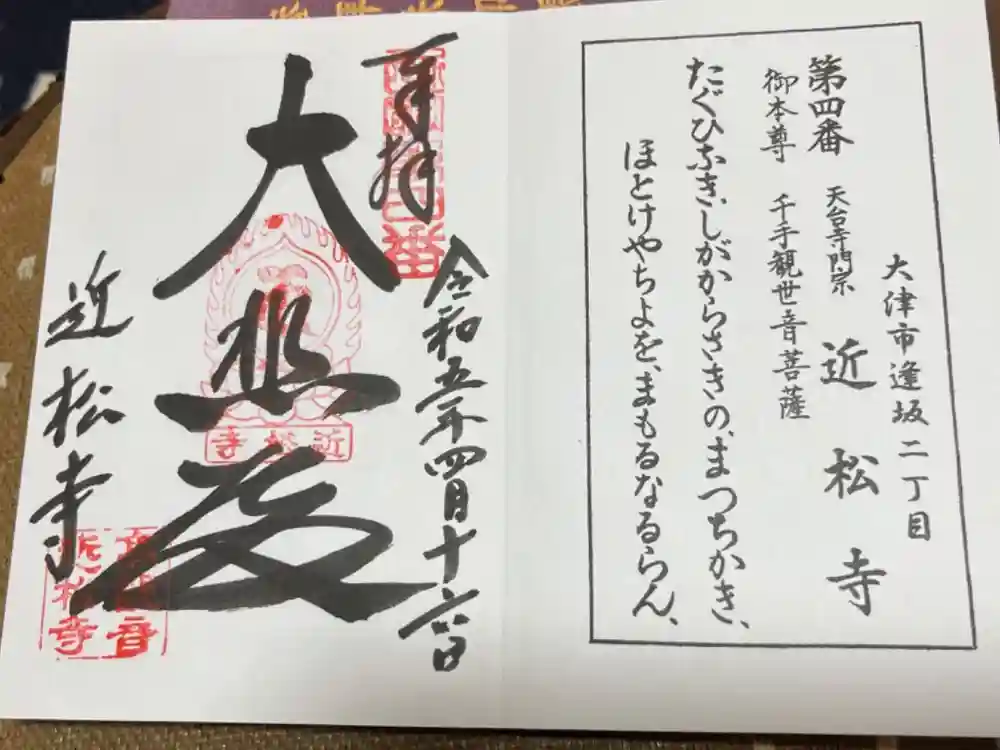 大津市逢坂二丁目
第四番 天台寺門宗 近松寺
御本尊 千手観世音菩薩
たぐひなき、しがからさきの、まつちかき、
ほとけやちよを、まもるなるらん、
奉拝
令和五年四月十六日
大悲殿
近松寺
近松寺